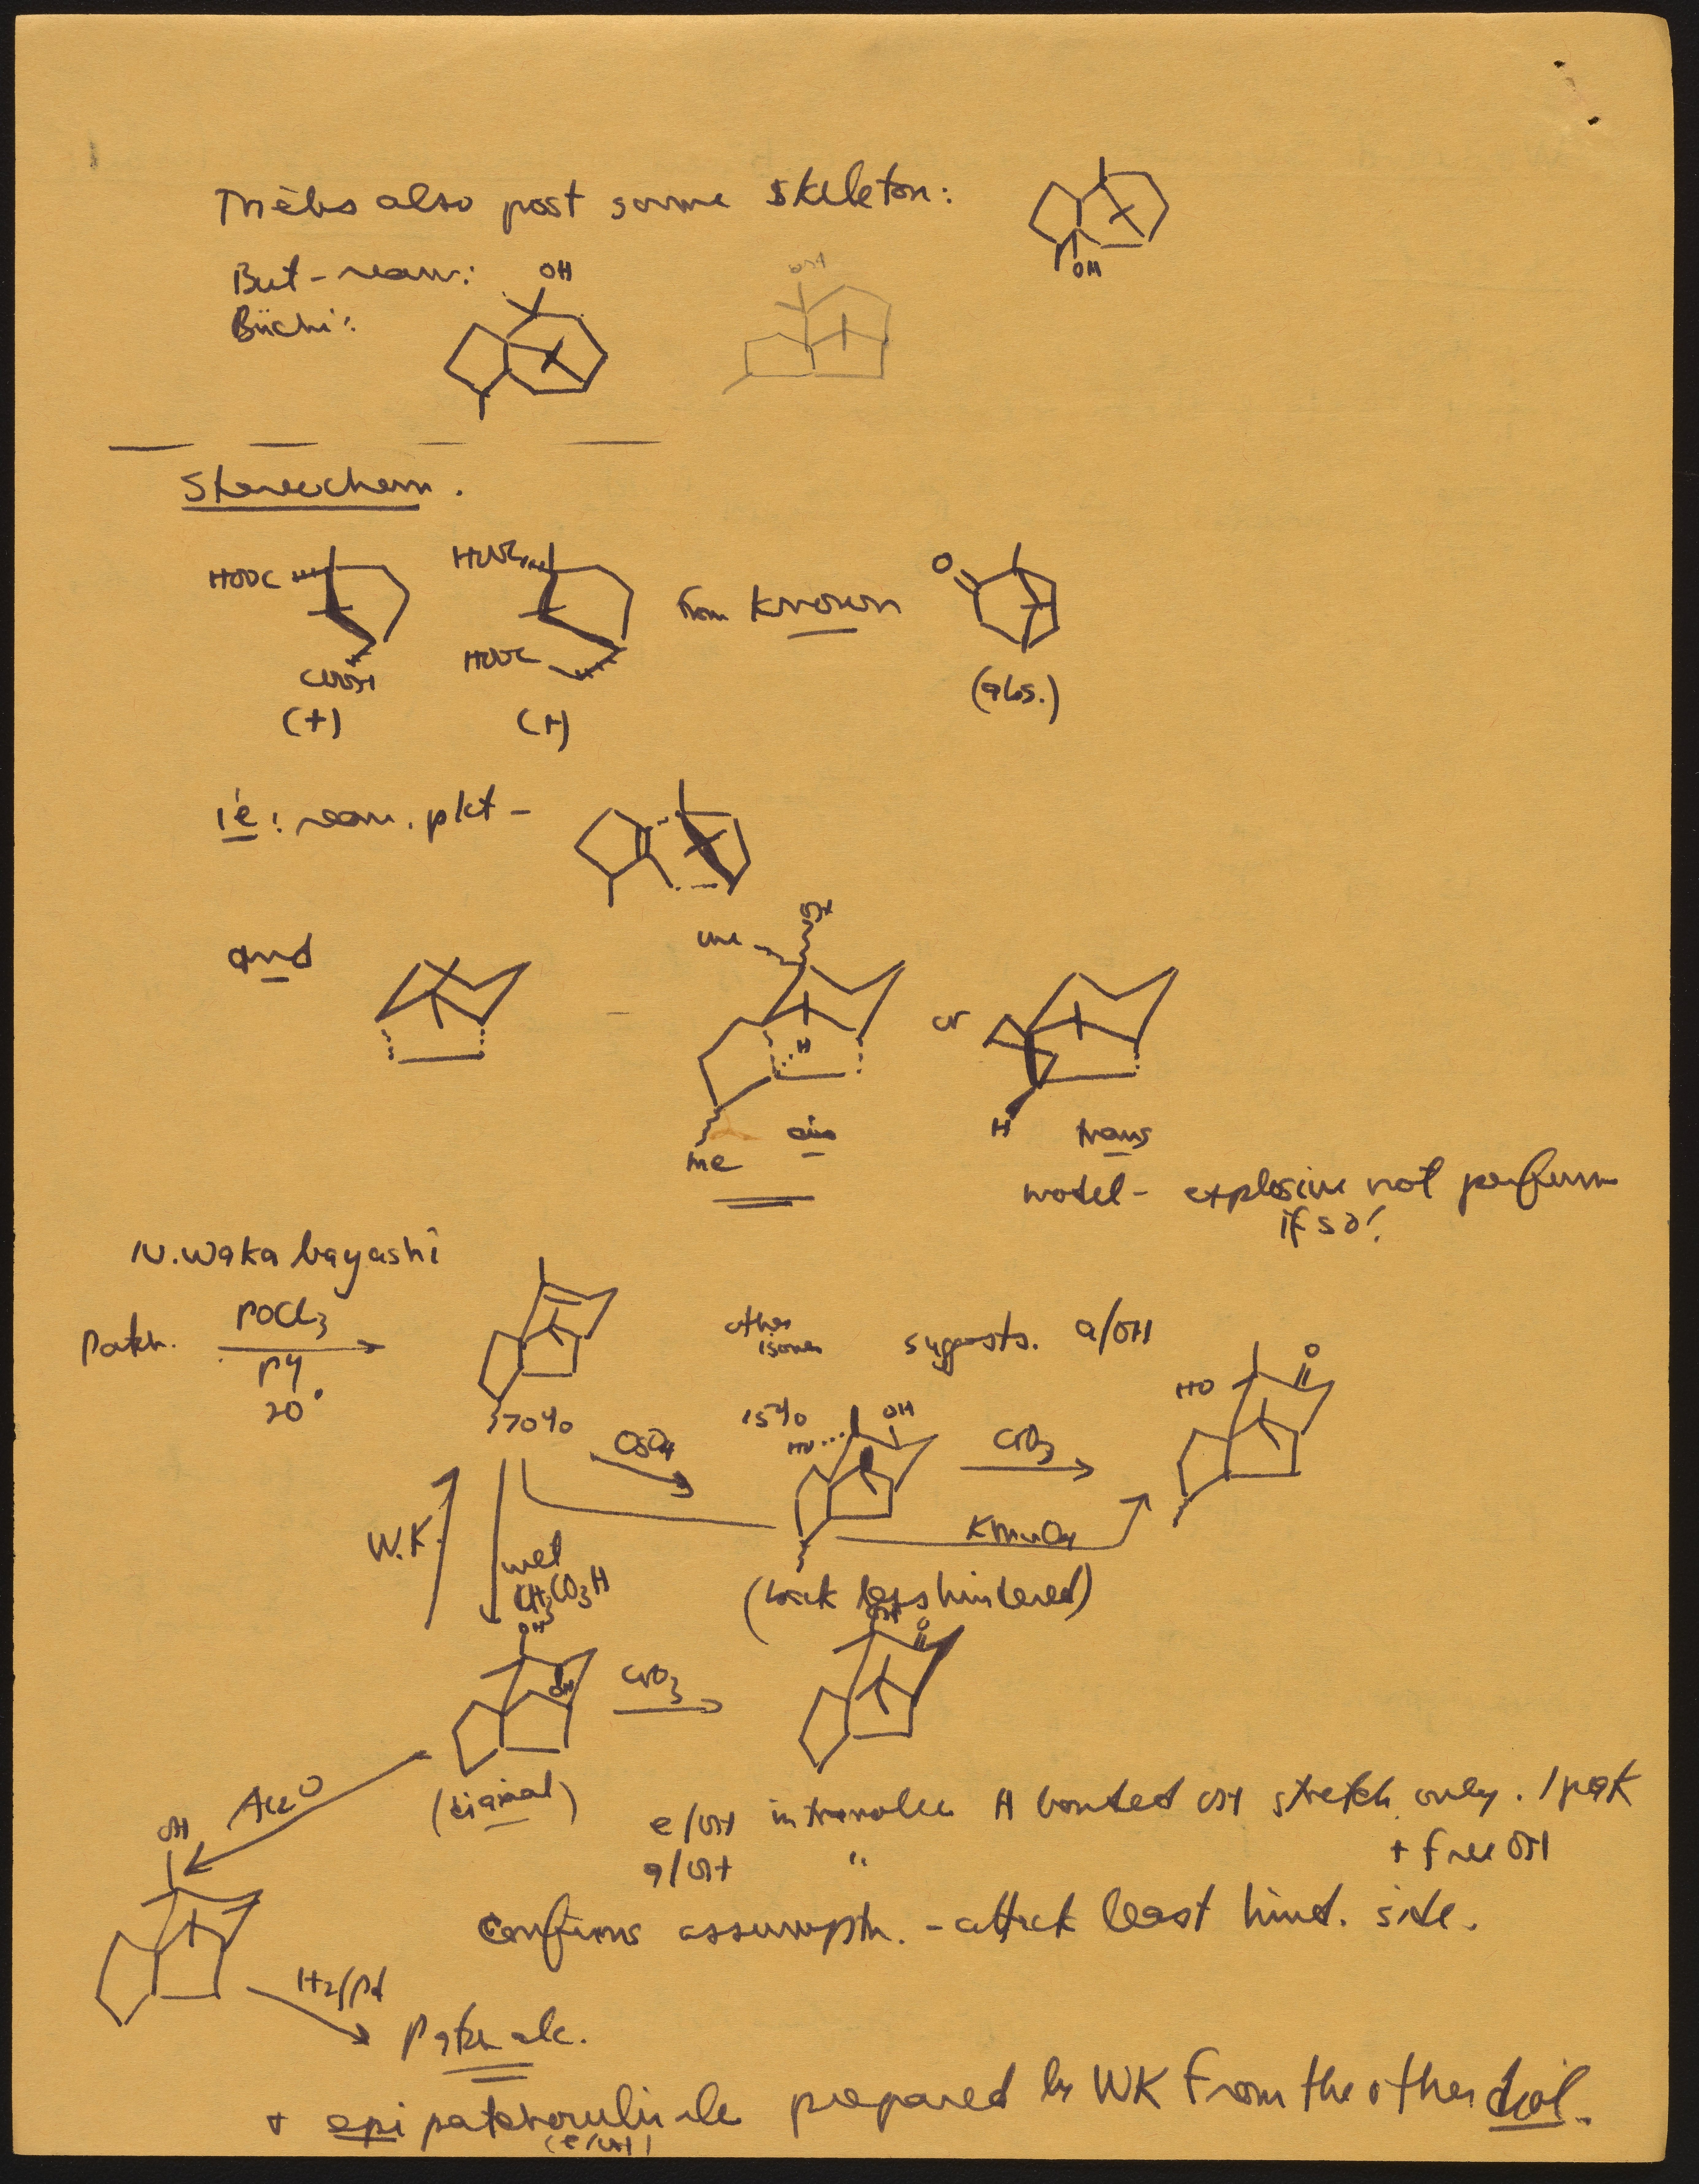 Triebs also post same skeleton:
OH
But - rearr:
Büchi:
OH
Stereochem.
HOOC
HOOC
from known
O
COOH
HOOC
(abs.)
(+)
(+)
ie: rearr. pkt -
OH
me
and
or
H
H
cis
trans
me
model - explosive not perfume
if so!
N. Wakabayashi
Patch.
POCl3
py
20°
other
isomer
suggests. a/OH
70%
15%
OsO4
HO
OH
CrO3
HO
O
KMnO4
W.K.
wet
CH3CO3H
(back less hindered)
OH
OH
OH
O
CrO3
(diaxial)
Ac2O
OH
e/OH intramolec H bonded OH stretch only. 1 peak
a/OH " + free OH
Confirms assumptn. - attack least hind. side.
H2/Pd
Patch alc.
+ epi patchouli alc prepared by WK from the other diol.
(e/OH)